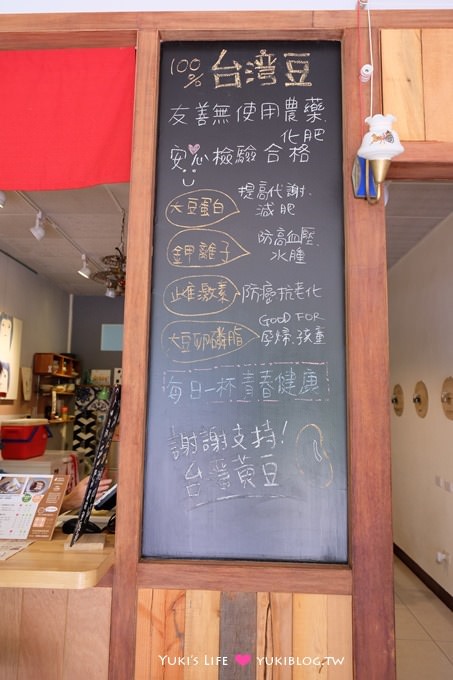 100% 台灣豆
友善無使用農藥、
化肥
安心檢驗合格
大豆蛋白 提高代謝、
減肥
鉀離子 防高血壓、
水腫
雌激素 防癌抗老化
大豆卵磷脂 GOOD FOR
孕婦、孩童
每日一杯青春健康
謝謝支持!
台灣黃豆
YUKI'S LIFE ♥ YUKIBLOG.TW